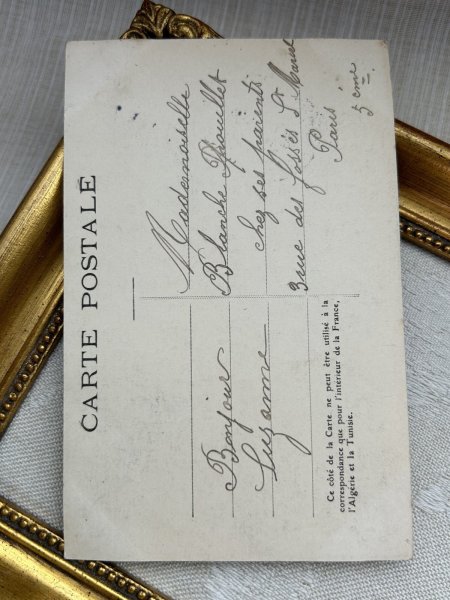 CARTE POSTALE
Bonjour
Suzanne
Ce côté de la Carte ne peut être utilisé à la
correspondance que pour l'intérieur de la France,
l'Algérie et la Tunisie.
Mademoiselle
Blanche
chez ses parients
3 rue des fossés St Marcel
Paris
5 eme